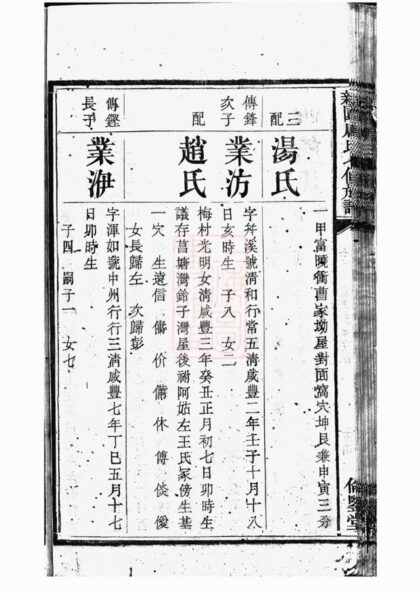 一甲富曉衝曹家坳屋對面窩穴坤艮兼申寅三分
三配
湯氏
傳鋒
次子
業汸
字芹溪號清和行常五清咸豐二年壬子十月十八
日亥時生 子八 女二
配
趙氏
梅村光明女清咸豐三年癸丑正月初七日卯時生
議存菖塘灣鈴子灣屋後祔阿姑左王氏冢傍生基
一穴 生遠信 价 備 休 傳 倓
女長歸左 次歸彭
傳鏗
長子
業洢
字渾如號中州行行三清咸豐七年丁巳五月十七
日卯時生
子四 嗣子一 女七